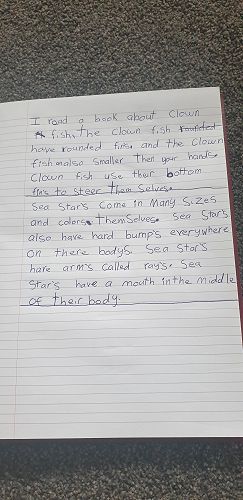 I read a book about Clown
fish. The Clown fish rounded
have rounded fins. and the Clown
fish also Smaller Then your hands.
Clown fish use their bottom
fins to steer Them Selves.
Sea Star's Come in Many Sizes
and colors. Them Selves. Sea Star's
also have hard bump's everywhere
on there body's. Sea Star's
have arm's Called ray's. Sea
Star's have a mouth in the middle
of their body.